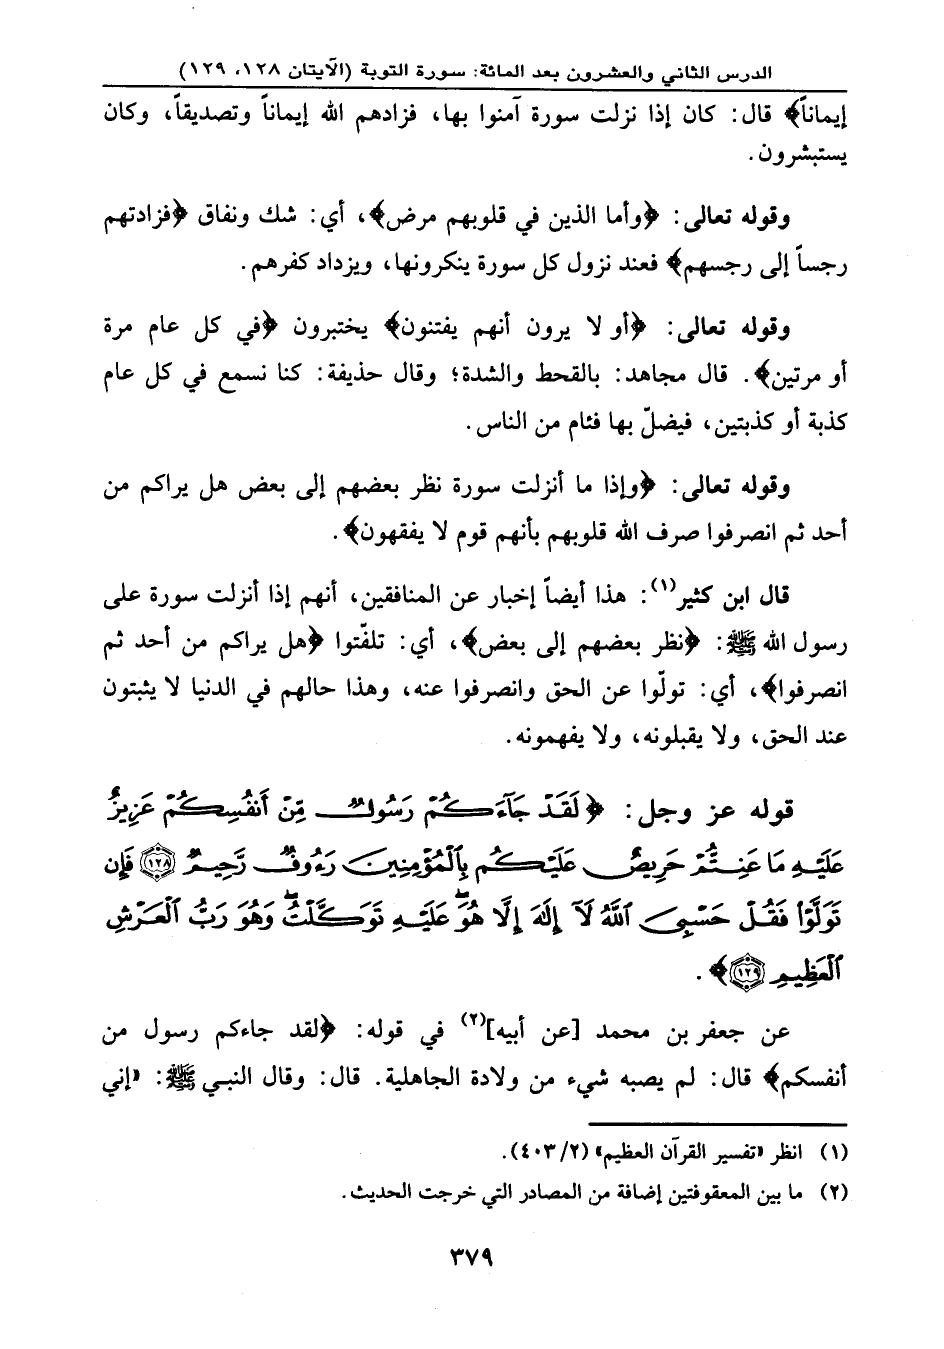 الدرس الثاني والعشرون بعد المائة: سورة التوبة (الآيتان ١٢٨، ١٢٩)
إيماناً﴾ قال: كان إذا نزلت سورة آمنوا بها، فزادهم الله إيماناً وتصديقاً، وكان
يستبشرون.
وقوله تعالى: ﴿وأما الذين في قلوبهم مرض﴾، أي: شك ونفاق ﴿فزادتهم
رجساً إلى رجسهم﴾ فعند نزول كل سورة ينكرونها، ويزداد كفرهم.
وقوله تعالى: ﴿أو لا يرون أنهم يفتنون﴾ يختبرون ﴿في كل عام مرة
أو مرتين﴾. قال مجاهد: بالقحط والشدة؛ وقال حذيفة: كنا نسمع في كل عام
كذبة أو كذبتين، فيضلّ بها فئام من الناس.
وقوله تعالى: ﴿وإذا ما أنزلت سورة نظر بعضهم إلى بعض هل يراكم من
أحد ثم انصرفوا صرف الله قلوبهم بأنهم قوم لا يفقهون﴾.
قال ابن كثير(١): هذا أيضاً إخبار عن المنافقين، أنهم إذا أنزلت سورة على
رسول الله ﷺ: ﴿نظر بعضهم إلى بعض﴾، أي: تلفّتوا ﴿هل يراكم من أحد ثم
انصرفوا﴾، أي: تولّوا عن الحق وانصرفوا عنه، وهذا حالهم في الدنيا لا يثبتون
عند الحق، ولا يقبلونه، ولا يفهمونه.
قوله عز وجل: ﴿لَقَدْ جَآءَكُمْ رَسُولٌ مِّنْ أَنفُسِكُمْ عَزِيزٌ
عَلَيْهِ مَا عَنِتُّمْ حَرِيصٌ عَلَيْكُم بِٱلْمُؤْمِنِينَ رَءُوفٌ رَّحِيمٌ ١٢٨ فَإِن
تَوَلَّوْا۟ فَقُلْ حَسْبِىَ ٱللَّهُ لَآ إِلَٰهَ إِلَّا هُوَ ۖ عَلَيْهِ تَوَكَّلْتُ ۖ وَهُوَ رَبُّ ٱلْعَرْشِ
ٱلْعَظِيمِ ١٢٩﴾.
عن جعفر بن محمد [عن أبيه](٢) في قوله: ﴿لقد جاءكم رسول من
أنفسكم﴾ قال: لم يصبه شيء من ولادة الجاهلية. قال: وقال النبي ﷺ: «إني
(١) انظر «تفسير القرآن العظيم» (٤٠٣/٢).
(٢) ما بين المعقوفتين إضافة من المصادر التي خرجت الحديث.
٣٧٩